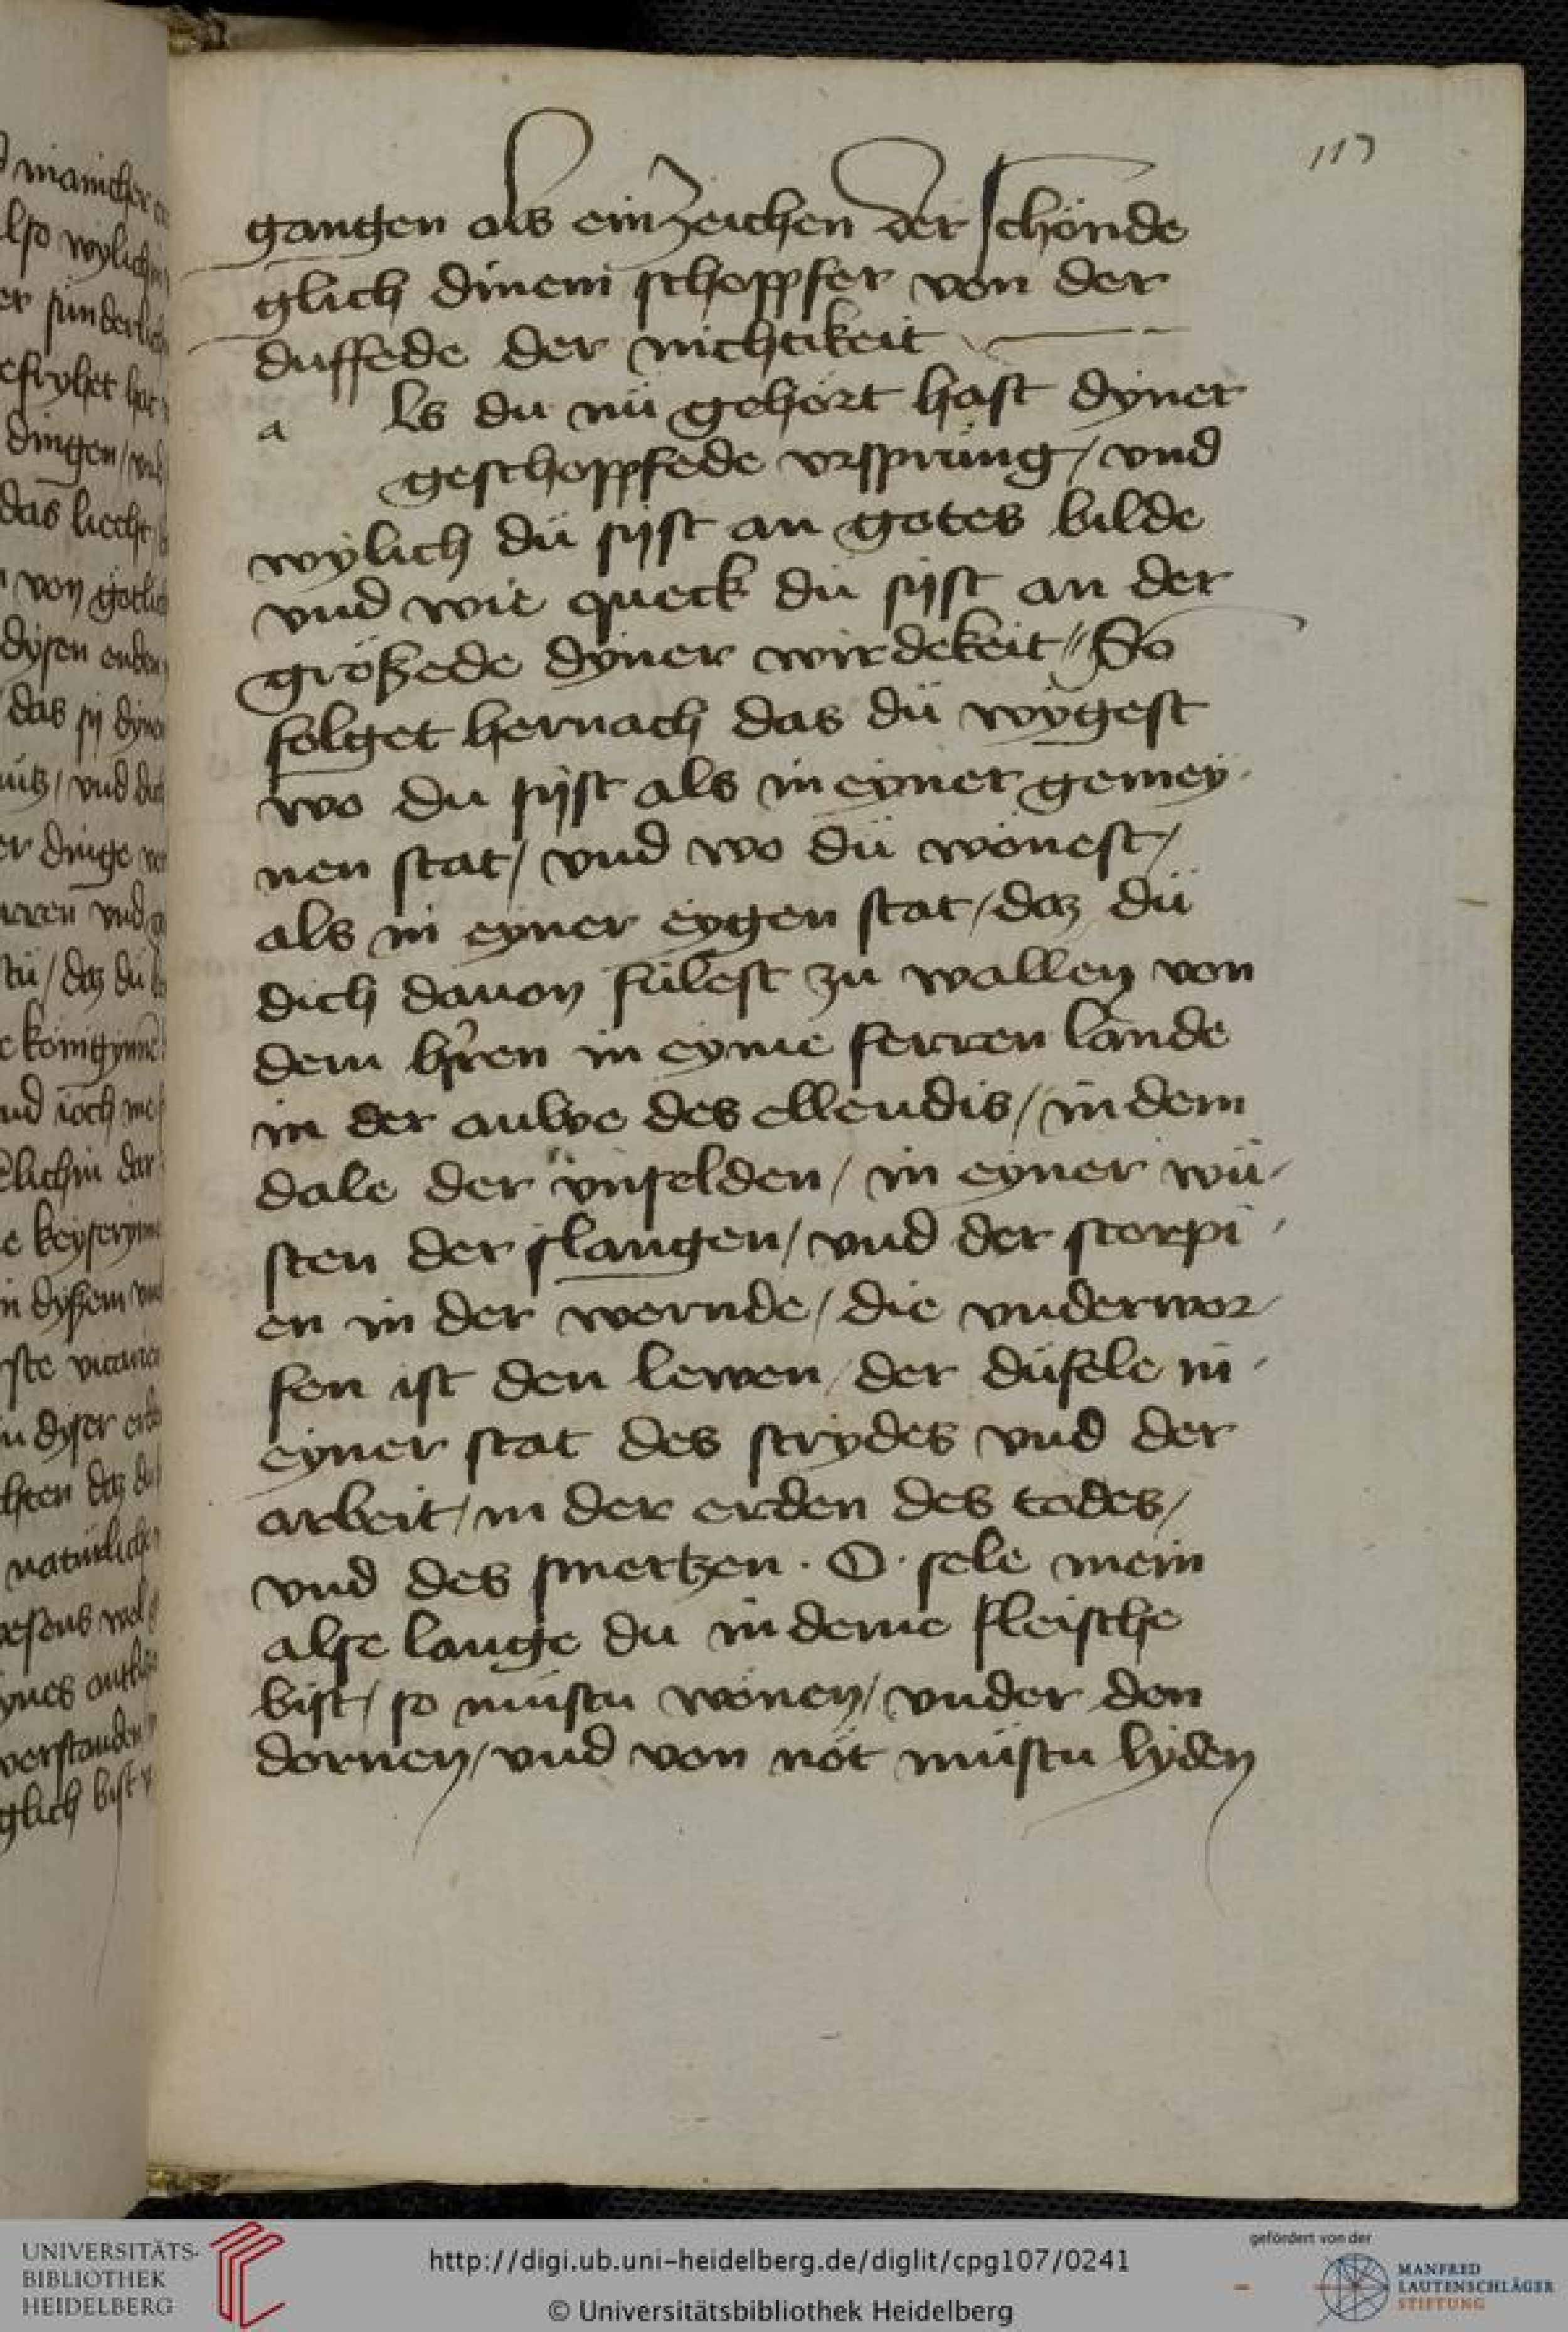 117
gangen als ein zeichen der schönde
glich dinem schoppfer von der
duffede der nichtikeit
a ls du nü gehört hast dyner
geschoppfede vrsprüng / vnd
wylich dü sijst an gotes bilde
vnd wie queck dü sijst an der
größede dyner wirdekeit // So
folget hernach das dü wygest
wo du sijst als in eyner gemey
nen stat / vnd wo dü wonest /
als in eyner eygen stat / daz dü
dich dauon fülest zu wallen von
dem hren in eyme ferren lande
in der des ellendis / in dem
dale der vnselden / in eyner wü-
sten der slangen / vnd der scorpi-
en in der wernde / die vnderwor-
fen ist den lewen / der düfele in
eyner stat des strydes vnd der
arbeit / in der erden des todes /
vnd des smertzen . O . sele mein
alse lange du in deme fleische
bist / so müstu wonen / vnder den
dornen / vnd von nöt müstu lyden
UNIVERSITÄTS-
BIBLIOTHEK
HEIDELBERG
http://digi.ub.uni-heidelberg.de/diglit/cpg107/0241
© Universitätsbibliothek Heidelberg
gefördert von der
MANFRED
LAUTENSCHLÄGER
STIFTUNG